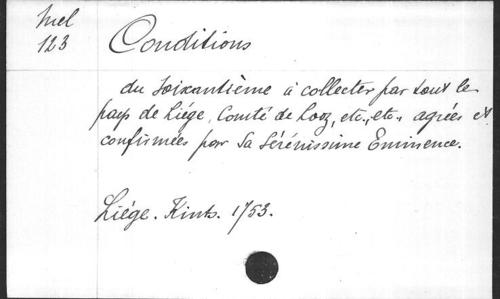 Mel
123
Conditions
du Soixantième à collecter par tout le
pays de Liége, Comté de Looz, etc., etc., agrées et
confirmées par Sa Sérénissime Eminence.
Liége. Kints. 1753.